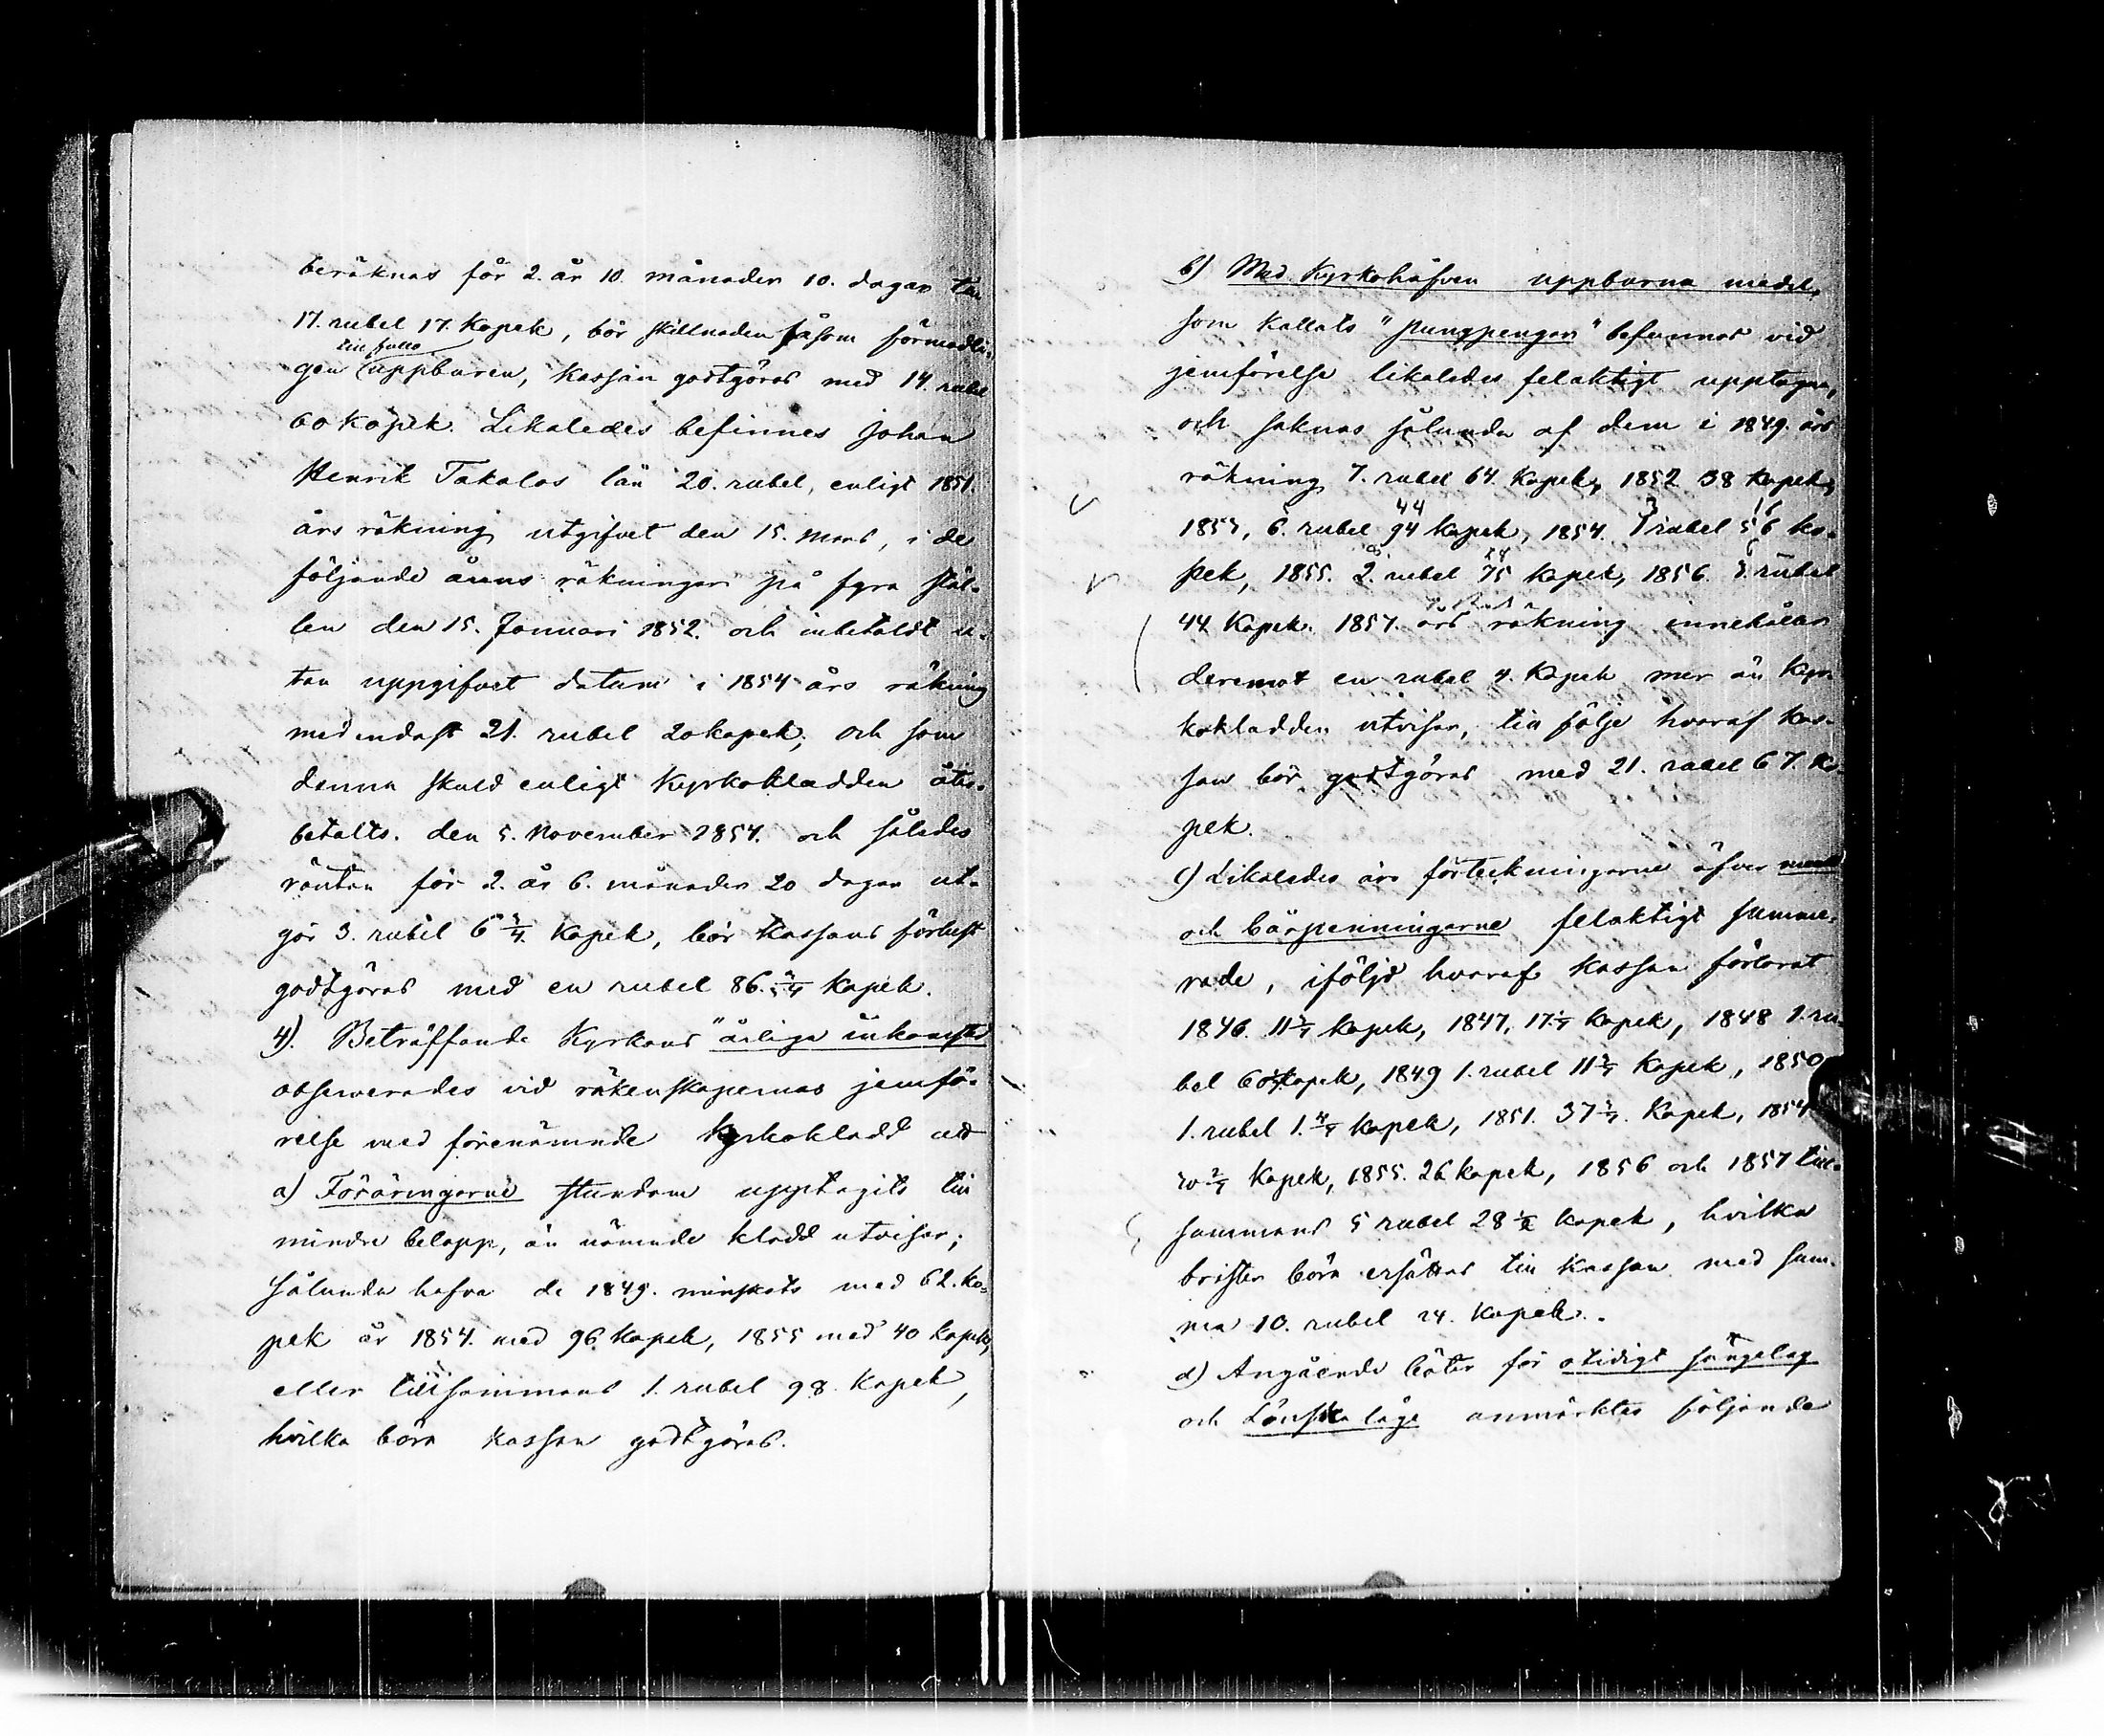 beräknas för 2. år 10. månader 10. dagar till
17. rubel 17. Kopek, bör skillnaden såsom förmodli-
till fullo
gen uppburen, kassan godtgöras med 14. rubel
60 Kopek. Likaledes befinnes Johan
Henrik Takalas lån 20. rubel, enligt 1851.
års räkning utgifvet den 15. Mars, i de
följande årens räkningar på fyra stäl-
len den 15. Januari 1852. och inbetaldt u-
tan uppgifvet datum i 1854 års räkning
med endast 21. rubel 20 kopek; och som
denna skuld enligt Kyrkokladden åter-
betalts den 5. November 1854. och således
räntan för 2. år 6. månader 20 dagar ut-
gör 3. rubel 6 5/7 Kopek, bör kassans förlust
godtgöras med en rubel 86. 5/7 kopek.
4). Beträffande Kyrkans "årliga inkomster
observerades vid räkenskapernas jemfö-
relse med förenämnde Kyrkokladd att
a) Föräringarne stundom upptagits till
mindre belopp, än nämnde kladd utvisar;
sålunda hafva de 1849. minskats med 62. ko-
pek år 1854. med 96. Kopek, 1855 med 40 kopek,
eller tillsammans 1. rubel 98. Kopek,
hvilka böra kassan godtgöras.
b) Med Kyrkohåfven uppburna medel,
som kallats "pungpengar" befunnos vid
jemförelse likaledes felaktigt upptagna,
och saknas sålunda af dem i 1849. års
räkning 7. rubel 64. Kopek, 1852 38 kopek,
44 3 16
1853, 6. rubel 94 kopek, 1854. 1 rubel 56 ko-
pek, 1855. 2. rubel 75 kopek, 1856. rubel
44 Kopek. 1857. års räkning innehåller
deremot en rubel 4. Kopek mer än Kyr-
kokladden utvisar, till följe hvaraf kas-
san bör godtgöras med 21. rubel 67. Ko-
pek.
c) Likaledes äro förteckningarne öfver
och bärpenningarne felaktigt summe-
rade, iföljd hvaraf kassan förlorat
1846. 11 3/7 kopek, 1847, 17 1/7 kopek, 1848 1. ru-
bel 60 kopek, 1849 1. rubel 11 3/7 Kopek, 1850
1. rubel 1. 4/7 kopek, 1851. 37 1/7. Kopek, 1854
20 2/7 Kopek, 1855. 26 kopek, 1856 och 1857 till-
sammans 5 rubel 28 1/2 kopek, hvilka
brister böra ersättas till Kassan med sum-
ma 10. rubel 24. Kopek.
d) Angående böter för otidigt sängelag
och Lönskaläge anmärktes följande